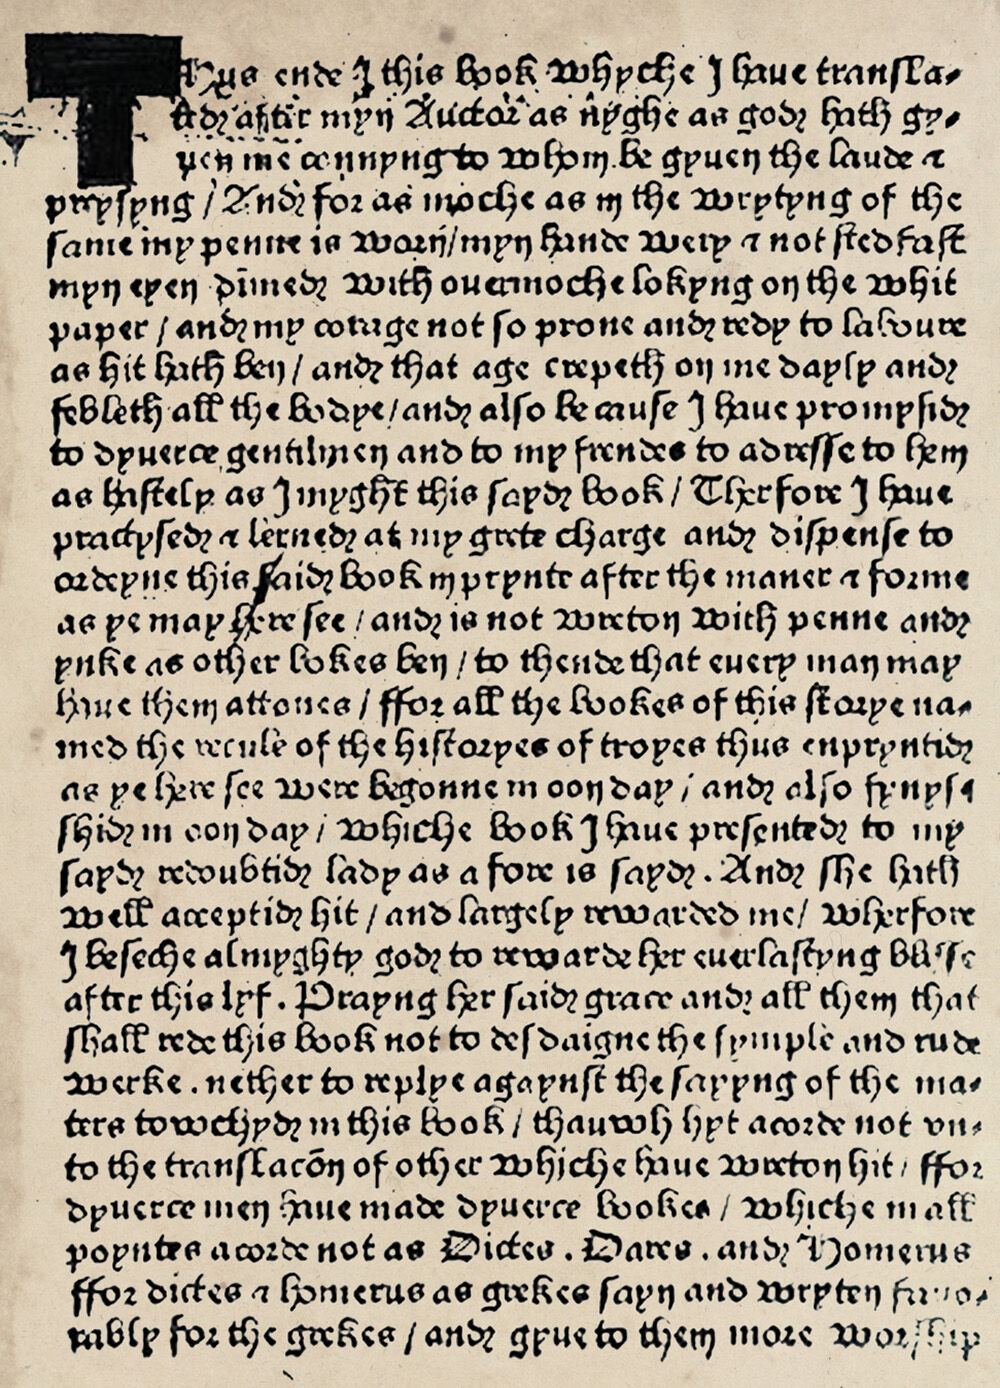 Thus ende I this book whyche I haue transla-
ted after myn Auctor as nyghe as god hath gy-
uen me connyng to whom be gyuen the laude &
preysyng / And for as moche as in the wrytyng of the
same my penne is worn / myn hande wery & not stedfast
myn eyen dimed with ouermoche lokyng on the whit
paper / and my corage not so prone and redy to laboure
as hit hath ben / and that age crepeth on me dayly and
febleth all the bodye / and also be cause I haue promysid
to dyuerce gentilmen and to my frendes to adresse to hem
as hastely as I myght this sayd book / Therfore I haue
practysed & lerned at my grete charge and dispense to
ordeyne this said book in prynte after the maner & forme
as ye may here see / and is not wreton with penne and
ynke as other bokes ben / to thende that euery man may
haue them attones / ffor all the bookes of this storye na-
med the recule of the historyes of troyes thus enpryntid
as ye here see were begonne in oon day / and also fynys-
shid in oon day / whiche book I haue presented to my
sayd redoubtid lady as a fore is sayd . And she hath
well acceptid hit / and largely rewarded me / wherfore
I beseche almyghty god to rewarde her euerlastyng blisse
after this lyf . Prayng her said grace and all them that
shall rede this book not to desdaigne the symple and rude
werke . nether to replye agaynst the sayyng of the ma-
ters towchyd in this book / thauwh hyt acorde not vn-
to the translacōn of other whiche haue wreton hit / ffor
dyuerce men haue made dyuerce bookes / whiche in all
poyntes acorde not as Dictes . Dares . and Homerus
ffor dictes & homerus as grekes sayn and wryten fauo-
rably for the grekes / and gyue to them more worship